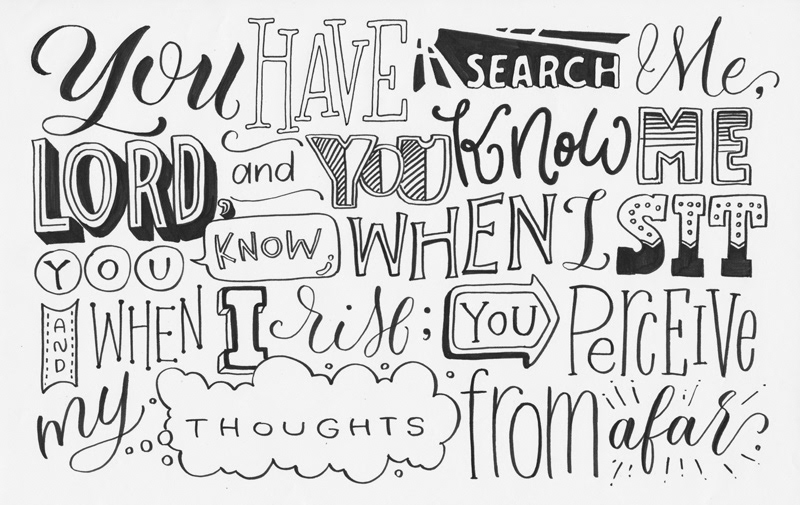 You HAVE SEARCH Me,
LORD, and YOU Know ME
YOU KNOW, WHEN I SIT
AND WHEN I rise; YOU PerCEIVe
my THOUGHTS from afar.